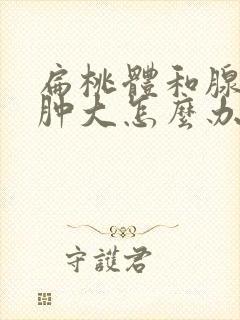 扁桃體和腺
肿大怎麼办
守護君